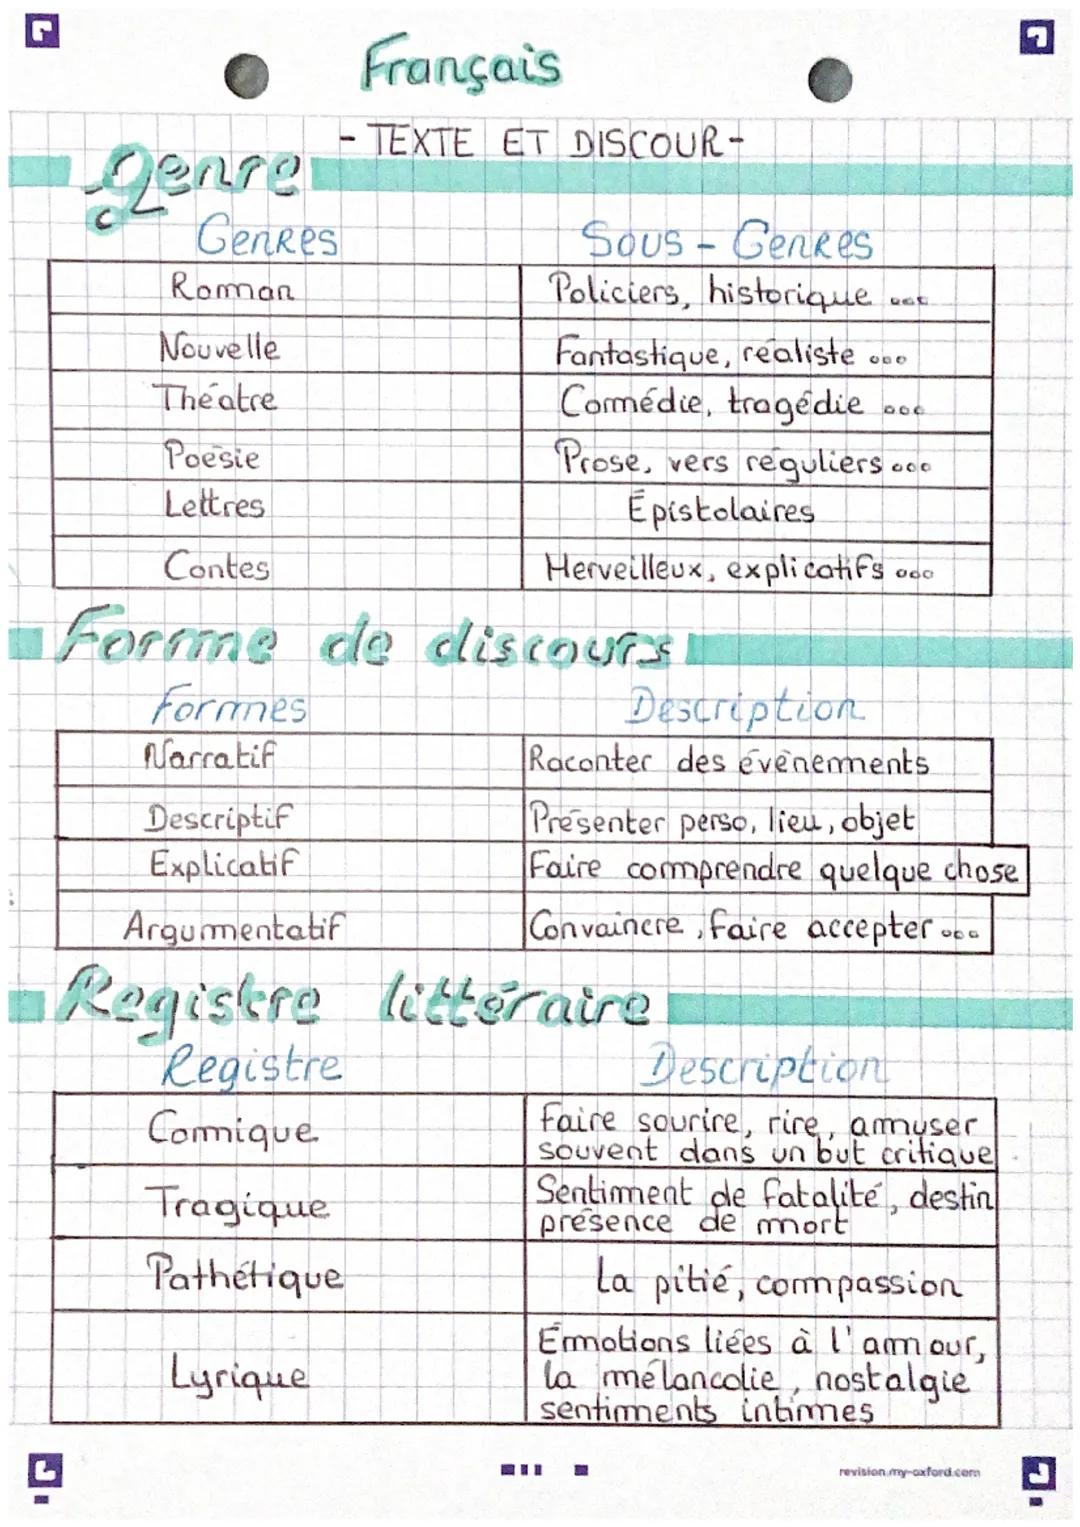 Français
- TEXTE ET DISCOUR-
genre
Genres
Sous - Genres
Roman
Policiers, historique ...
Nouvelle
Fantastique, réaliste ...
Théatre
Comédie, tragédie ...
Poésie
Prose, vers réguliers ...
Lettres
Épistolaires
Contes
Merveilleux, explicatifs ...
Forme de discours
Formes
Description
Narratif
Raconter des évènements
Descriptif
Présenter perso, lieu, objet
Explicatif
Faire comprendre quelque chose
Argumentatif
Convaincre, faire accepter ...
Registre littéraire
Registre
Description
Comique
Faire sourire, rire, amuser
souvent dans un but critique
Tragique
Sentiment de fatalité, destin
présence de mort
Pathétique
La pitié, compassion
Lyrique
Émotions liées à l'amour,
la mélancolie, nostalgie
sentiments intimes
revision.my-oxford.com